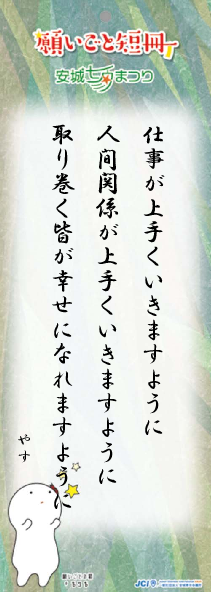 願いごと短冊
安城七夕まつり
仕事が上手くいきますように
人間関係が上手くいきますように
取り巻く皆が幸せになれますように
やす
JCI